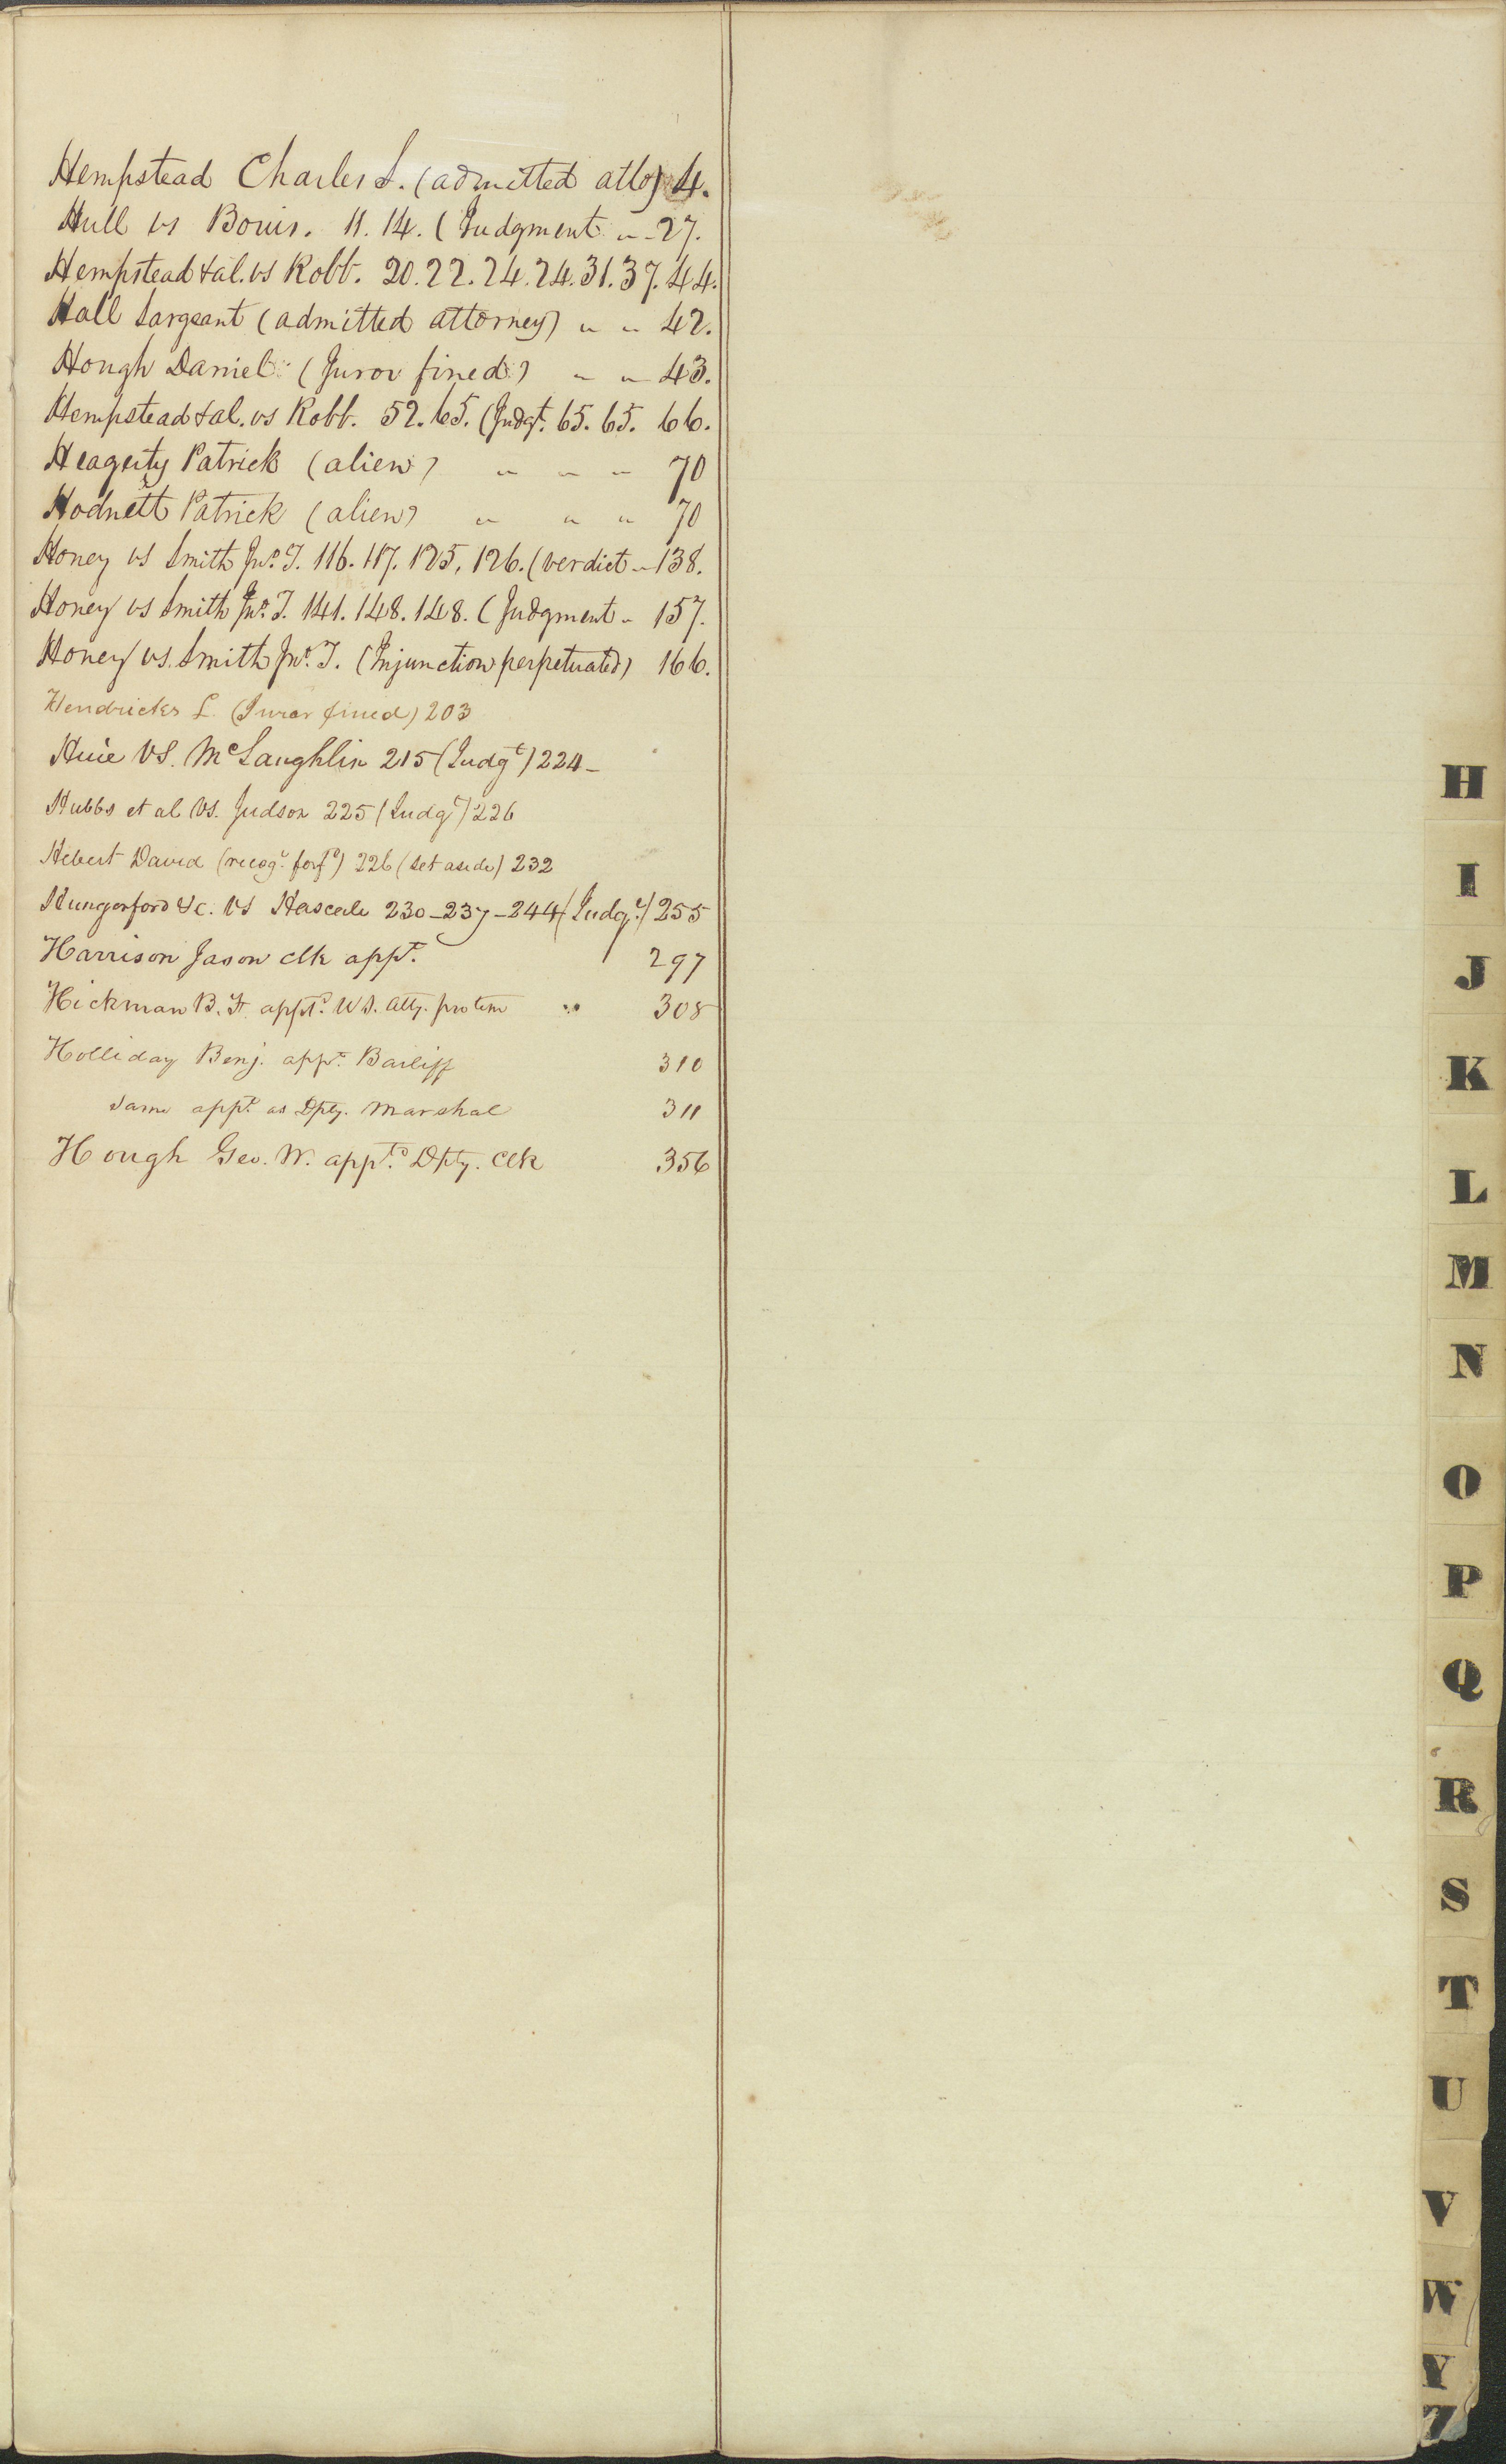 Hempstead Charles S. (admitted atto) 4.
Hull vs Bouis. 11. 14. (Judgment " - 27.
Hempstead & al. vs Robb. 20. 22. 24. 24. 31. 37. 44.
Hall Sargeant (admitted attorney) " " 42.
Hough Daniel (Juror fined) " " 43.
Hempstead & al. vs Robb. 52. 65. (Judgt. 65. 65. 66.
Heagerty Patrick (alien) " " " 70
Hodnett Patrick (alien) " " " 70
Honey vs Smith Jno. T. 116. 117. 125, 126. (verdict " 138.
Honey vs Smith Jno. T. 141. 148. 148. (Judgment " 157.
Honey vs. Smith Jno. T. (Injunction perpetuated) 166.
Hendricks L. (Juror fined) 203
Huie VS. McLaughlin 215 (Judgt) 224 -
Hubbs et al vs. Judson 225 (Judgt) 226
Hebert David (recogr. forfd) 226 (set aside) 232
Hungerford &c. vs 230 - 237 - 244 (Judgt.) 255
Harrison Jason clk appt. 297
Hickman B. F. apptd. U S. atty. protem " 308
Holliday Benj. appt. Bailiff 310
same appt. as Dpty. Marshal 311
Hough Geo. W. apptd. Dpty. Clk 356
H
I
J
K
L
M
N
O
P
Q
R
S
T
U
V
W
Y
Z